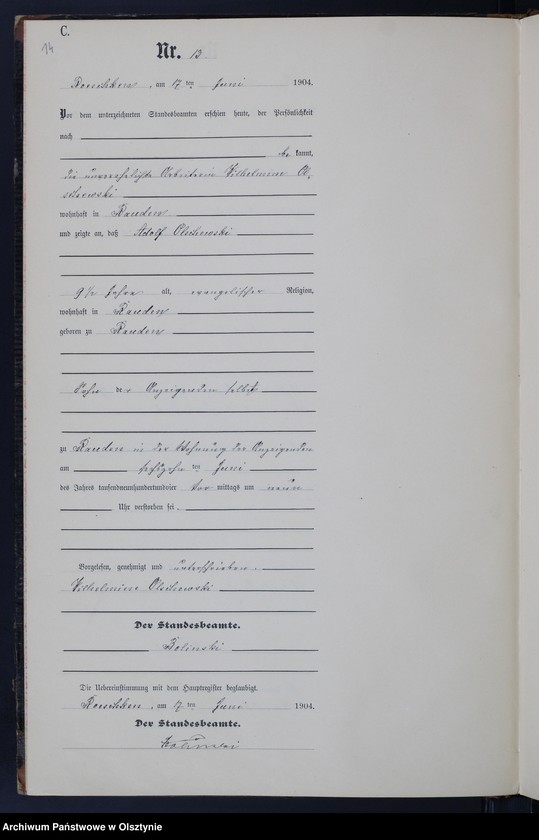 C.
14
Nr. 13
Roeschken, am 17 ten Juni 1904.
Vor dem unterzeichneten Standesbeamten erschien heute, der Persönlichkeit
nach
be kannt,
die unverehelichte Arbeiterin Wilhelmine Ol-
schewski
wohnhaft in Rauden
und zeigte an, daß Adolf Olschewski
9 1/2 Jahre alt, evangelischer Religion,
wohnhaft in Rauden
geboren zu Rauden
Sohn der Anzeigenden selbst
zu Rauden in der Wohnung der Anzeigenden
am sechszehn ten Juni
des Jahres tausendneunhundertundvier Vor mittags um neun
Uhr verstorben sei.
Vorgelesen, genehmigt und unterschrieben.
Wilhelmine Olschewski
Der Standesbeamte.
Kolinski
Die Uebereinstimmung mit dem Hauptregister beglaubigt.
Roeschken, am 17 ten Juni 1904.
Der Standesbeamte.
Kolinski
Archiwum Państwowe w Olsztynie